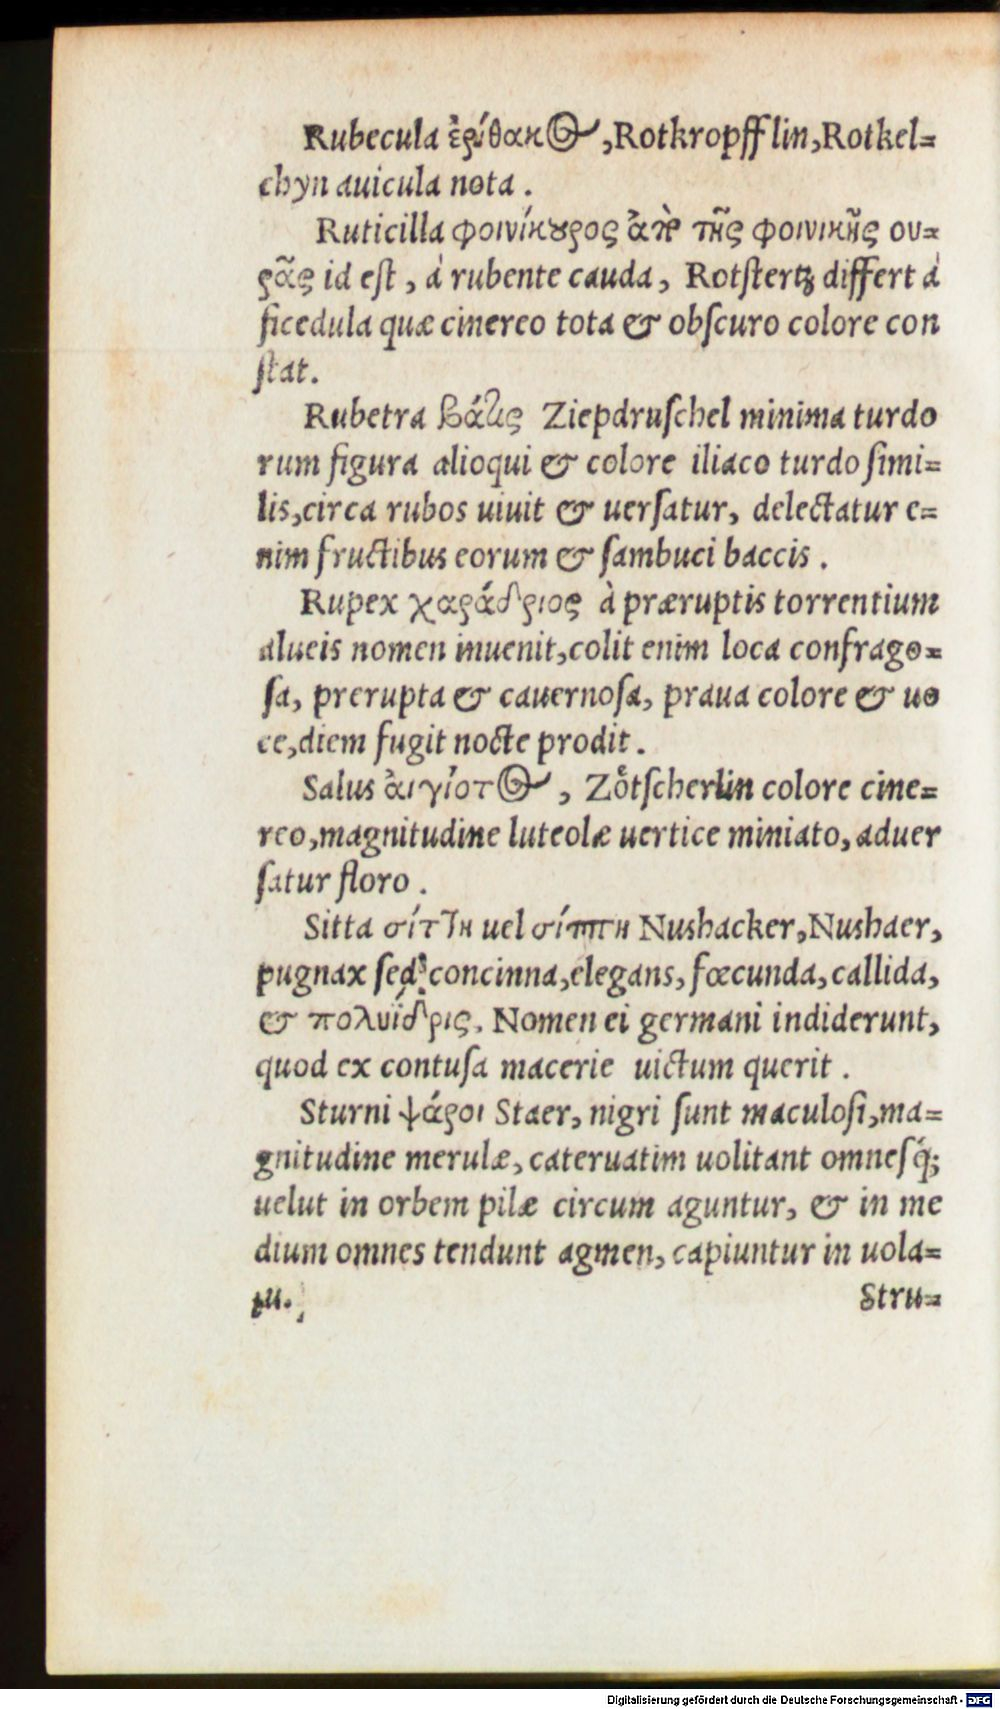 Rubecula ἐρίθακος, Rotkropfflin, Rotkel=
chyn auicula nota.
Ruticilla φοινίκουρος ἀπὸ τῆς φοινικῆς ου=
ρᾶς id est, à rubente cauda, Rotstertz differt à
ficedula quæ cinereo tota & obscuro colore con
stat.
Rubetra βάτις Ziepdruschel minima turdo
rum figura alioqui & colore iliaco turdo simi=
lis, circa rubos uiuit & uersatur, delectatur e=
nim fructibus eorum & sambuci baccis.
Rupex χαράδριος à præruptis torrentium
alueis nomen inuenit, colit enim loca confrago=
sa, prerupta & cauernosa, praua colore & uo
ce, diem fugit nocte prodit.
Salus ἀιγίοτος, Zoͤtscherlin colore cine=
reo, magnitudine luteolæ uertice miniato, aduer
satur floro.
Sitta σίττη uel σίππη Nushacker, Nushaer,
pugnax sed concinna, elegans, fœcunda, callida,
& πολυΐδρις. Nomen ei germani indiderunt,
quod ex contusa macerie uictum querit.
Sturni ψάροι Staer, nigri sunt maculosi, ma=
gnitudine merulæ, cateruatim uolitant omnesq́;
uelut in orbem pilæ circum aguntur, & in me
dium omnes tendunt agmen, capiuntur in uola=
tu.
Stru=
Digitalisierung gefördert durch die Deutsche Forschungsgemeinschaft - DFG